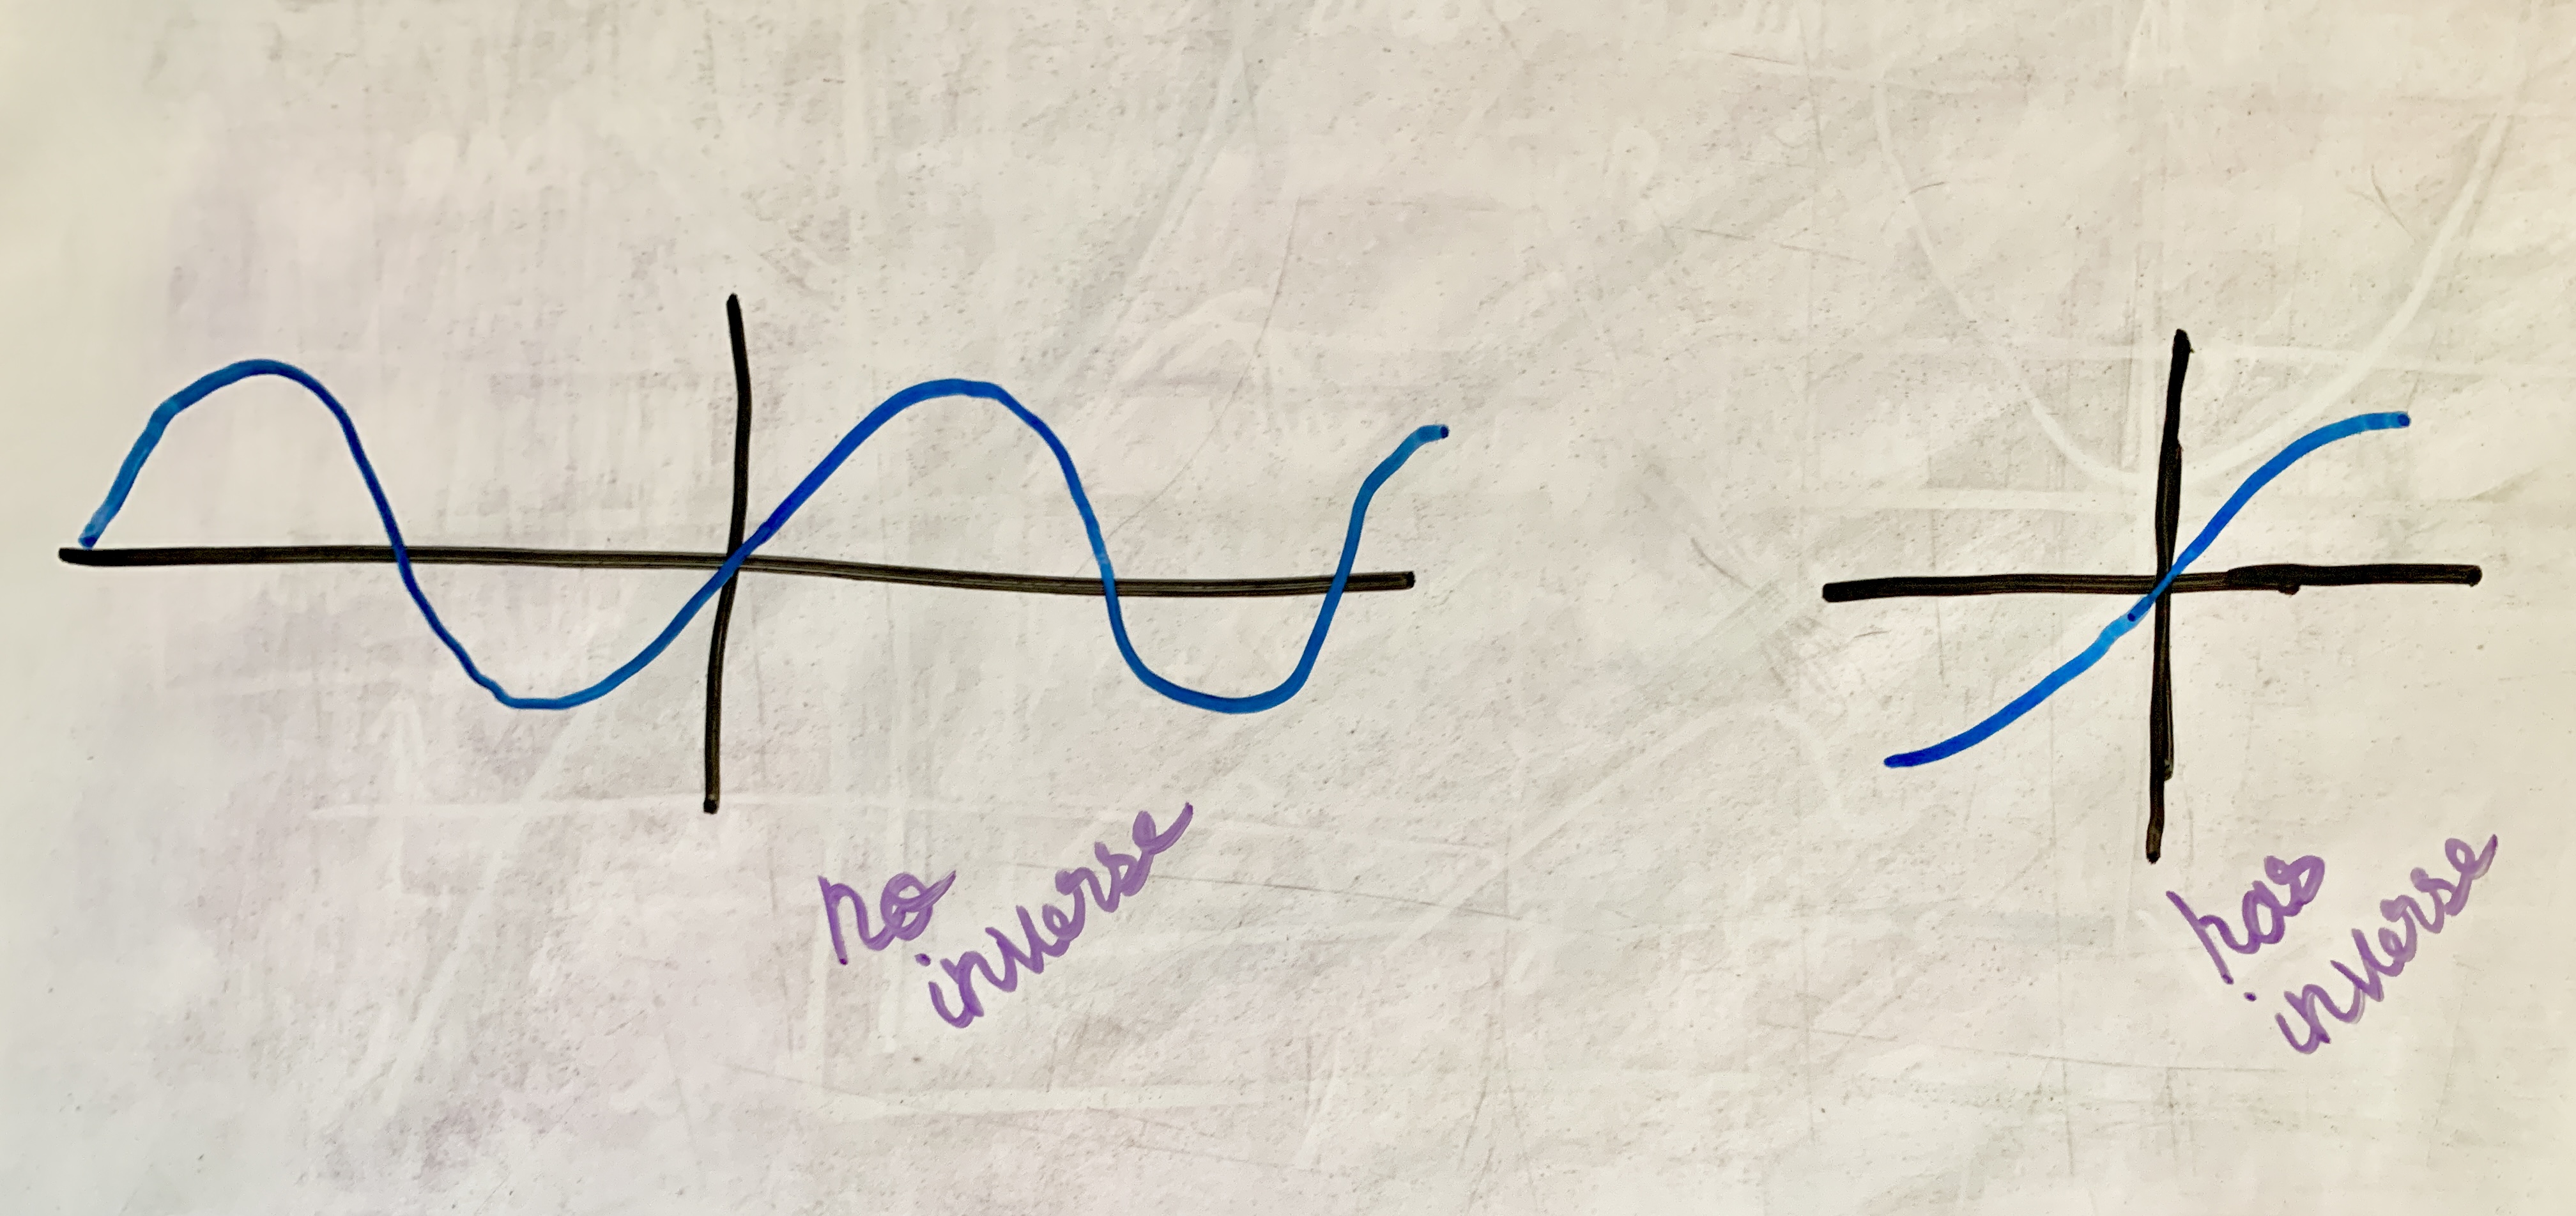 no
inverse
has
inverse